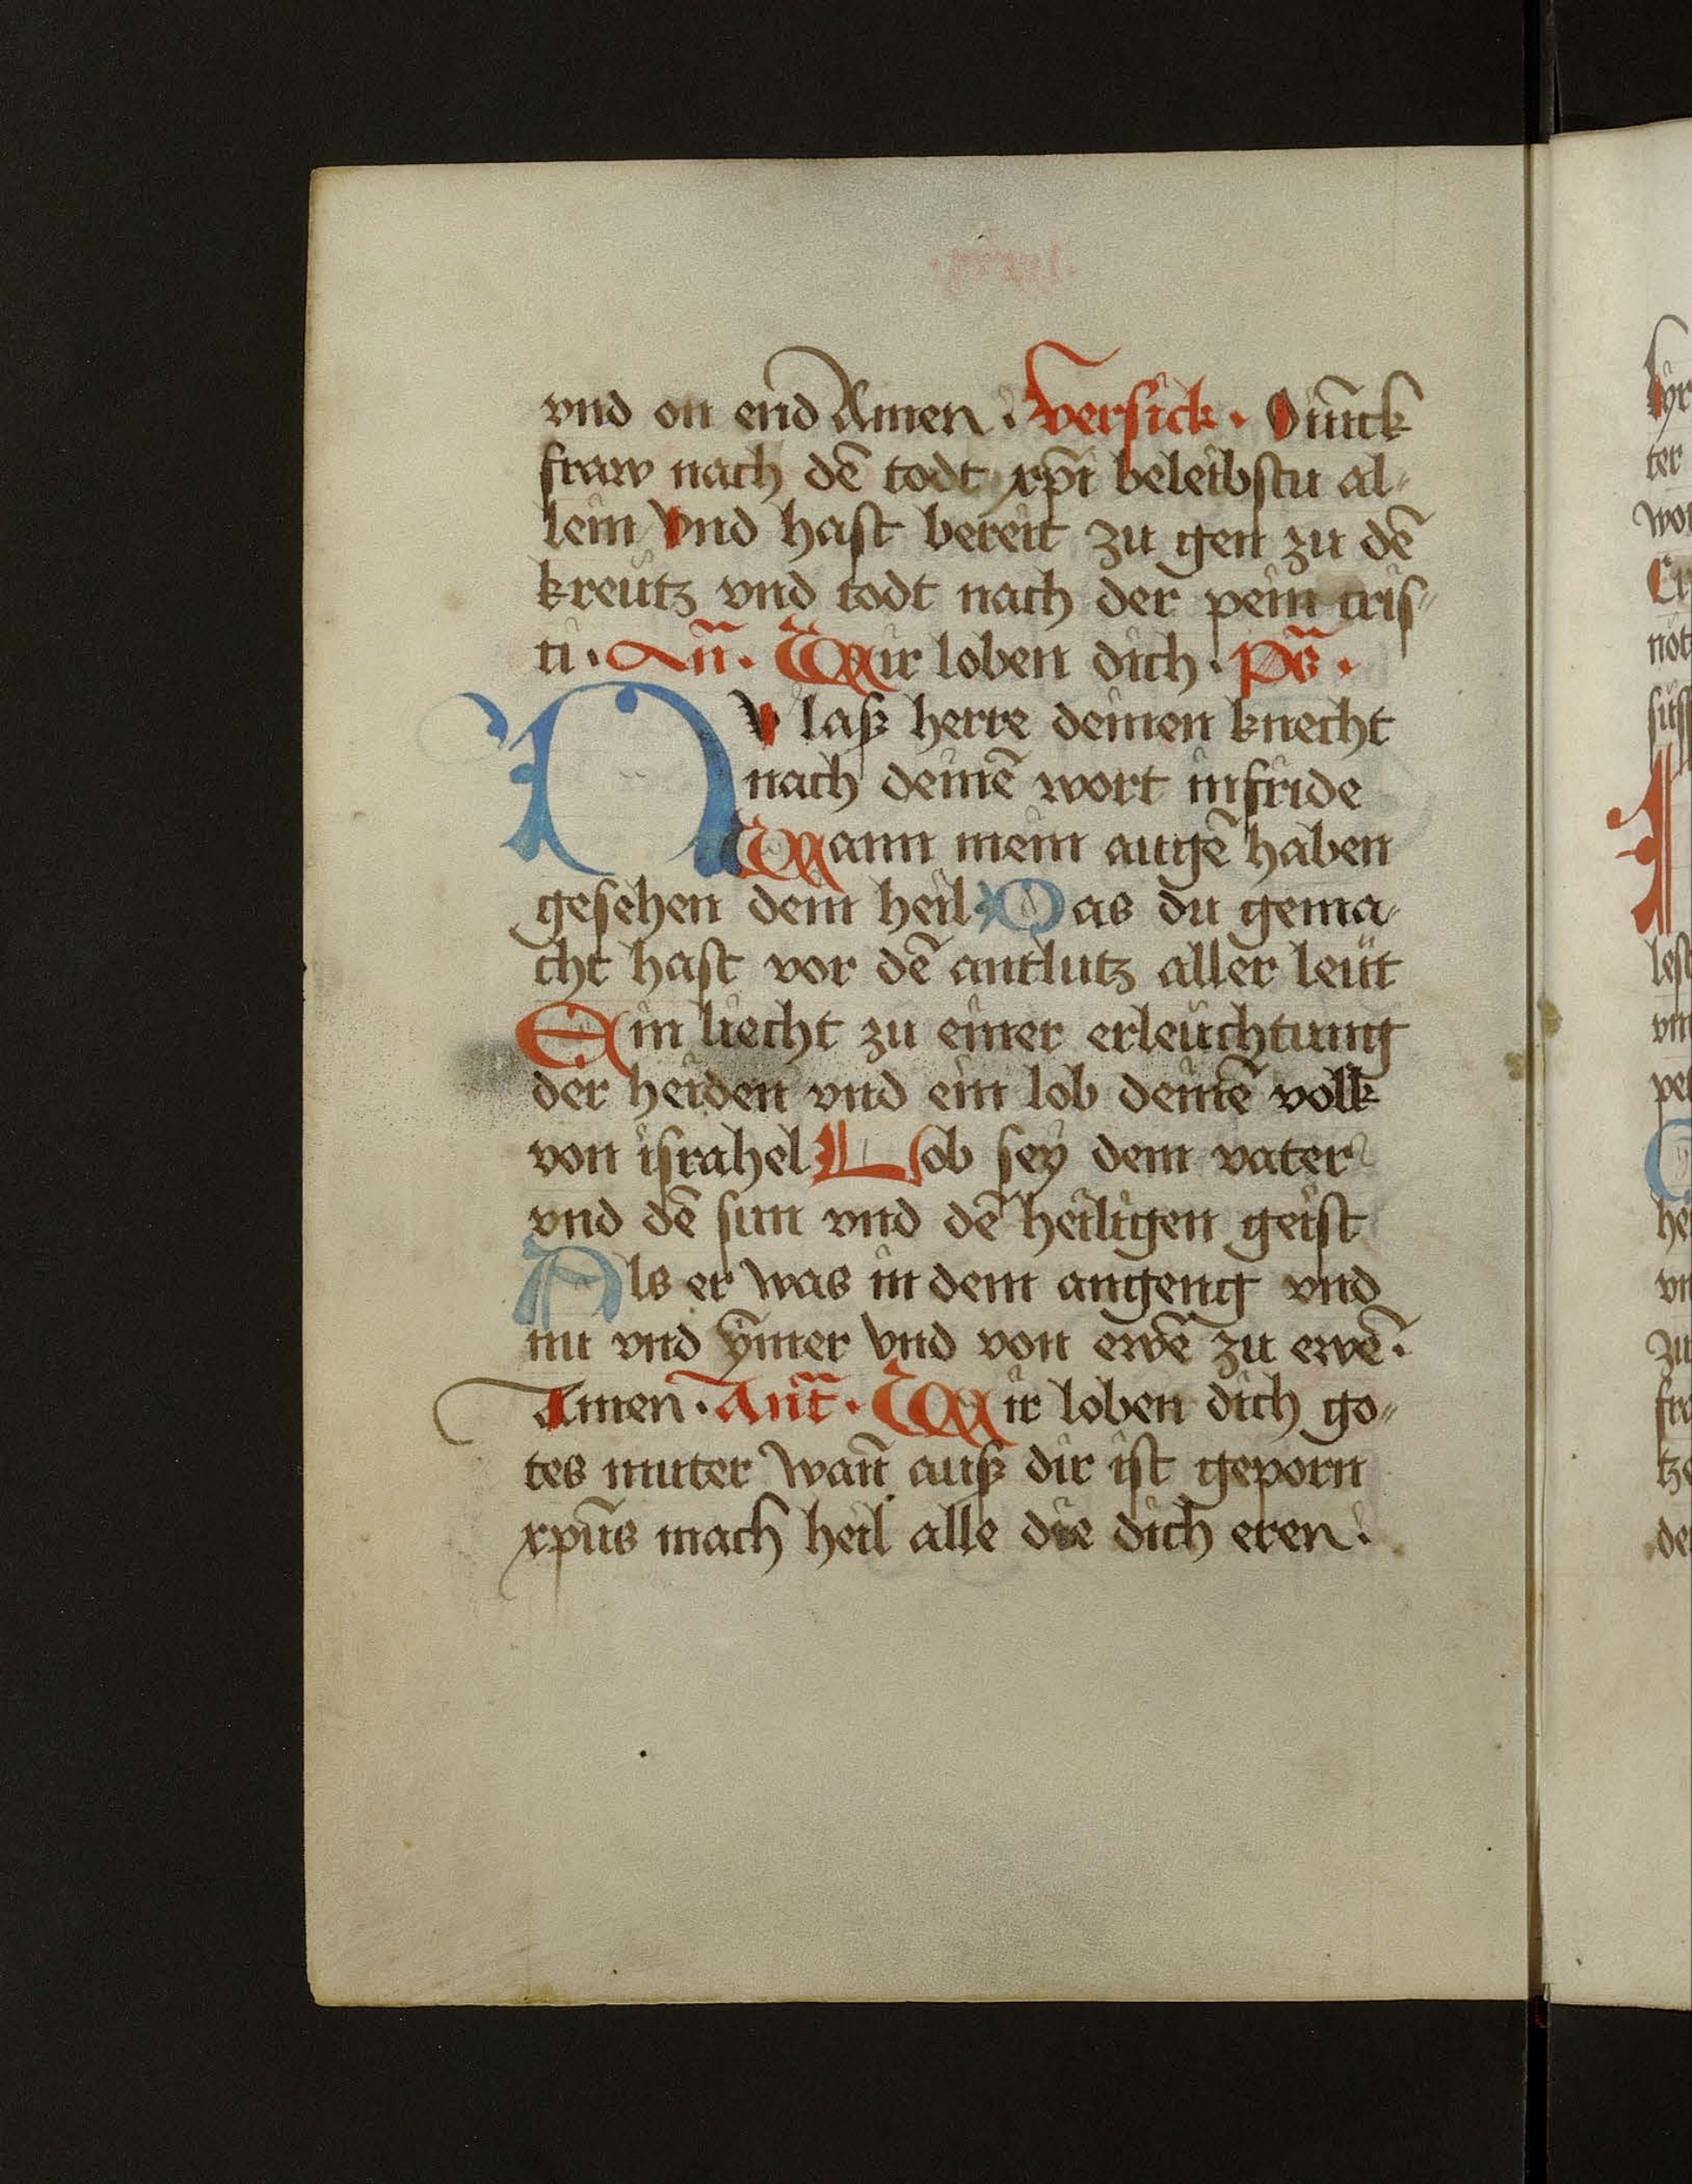 vnd on end Amen · versick · Jūnck
fraw nach dē todt xp̄i beleibstu al⸗
lein vnd hast bereit zu gen zu dē
kreutz vnd todt nach der pein cris⸗
ti · An̄ · Wir loben dich · Ps̄ ·
Nv laß herre deinen knecht
nach deinē wort in fride
Wann mein augē haben
gesehen dein heil Das du gema⸗
cht hast vor dē antlutz aller leüt
Ein liecht zu einer erleuchtung
der heiden vnd ein lob deinē volk
von israhel Lob sey dem vater
vnd dē sun vnd dē heiligen geist
Als er was in dem angeng vnd
nu vnd ym̄er vnd von ewē zu ewē ·
Amen · Ant̄ · Wir loben dich go⸗
tes muter wan̄ auß dir ist geporn
xpūs mach heil alle die dich eren ·